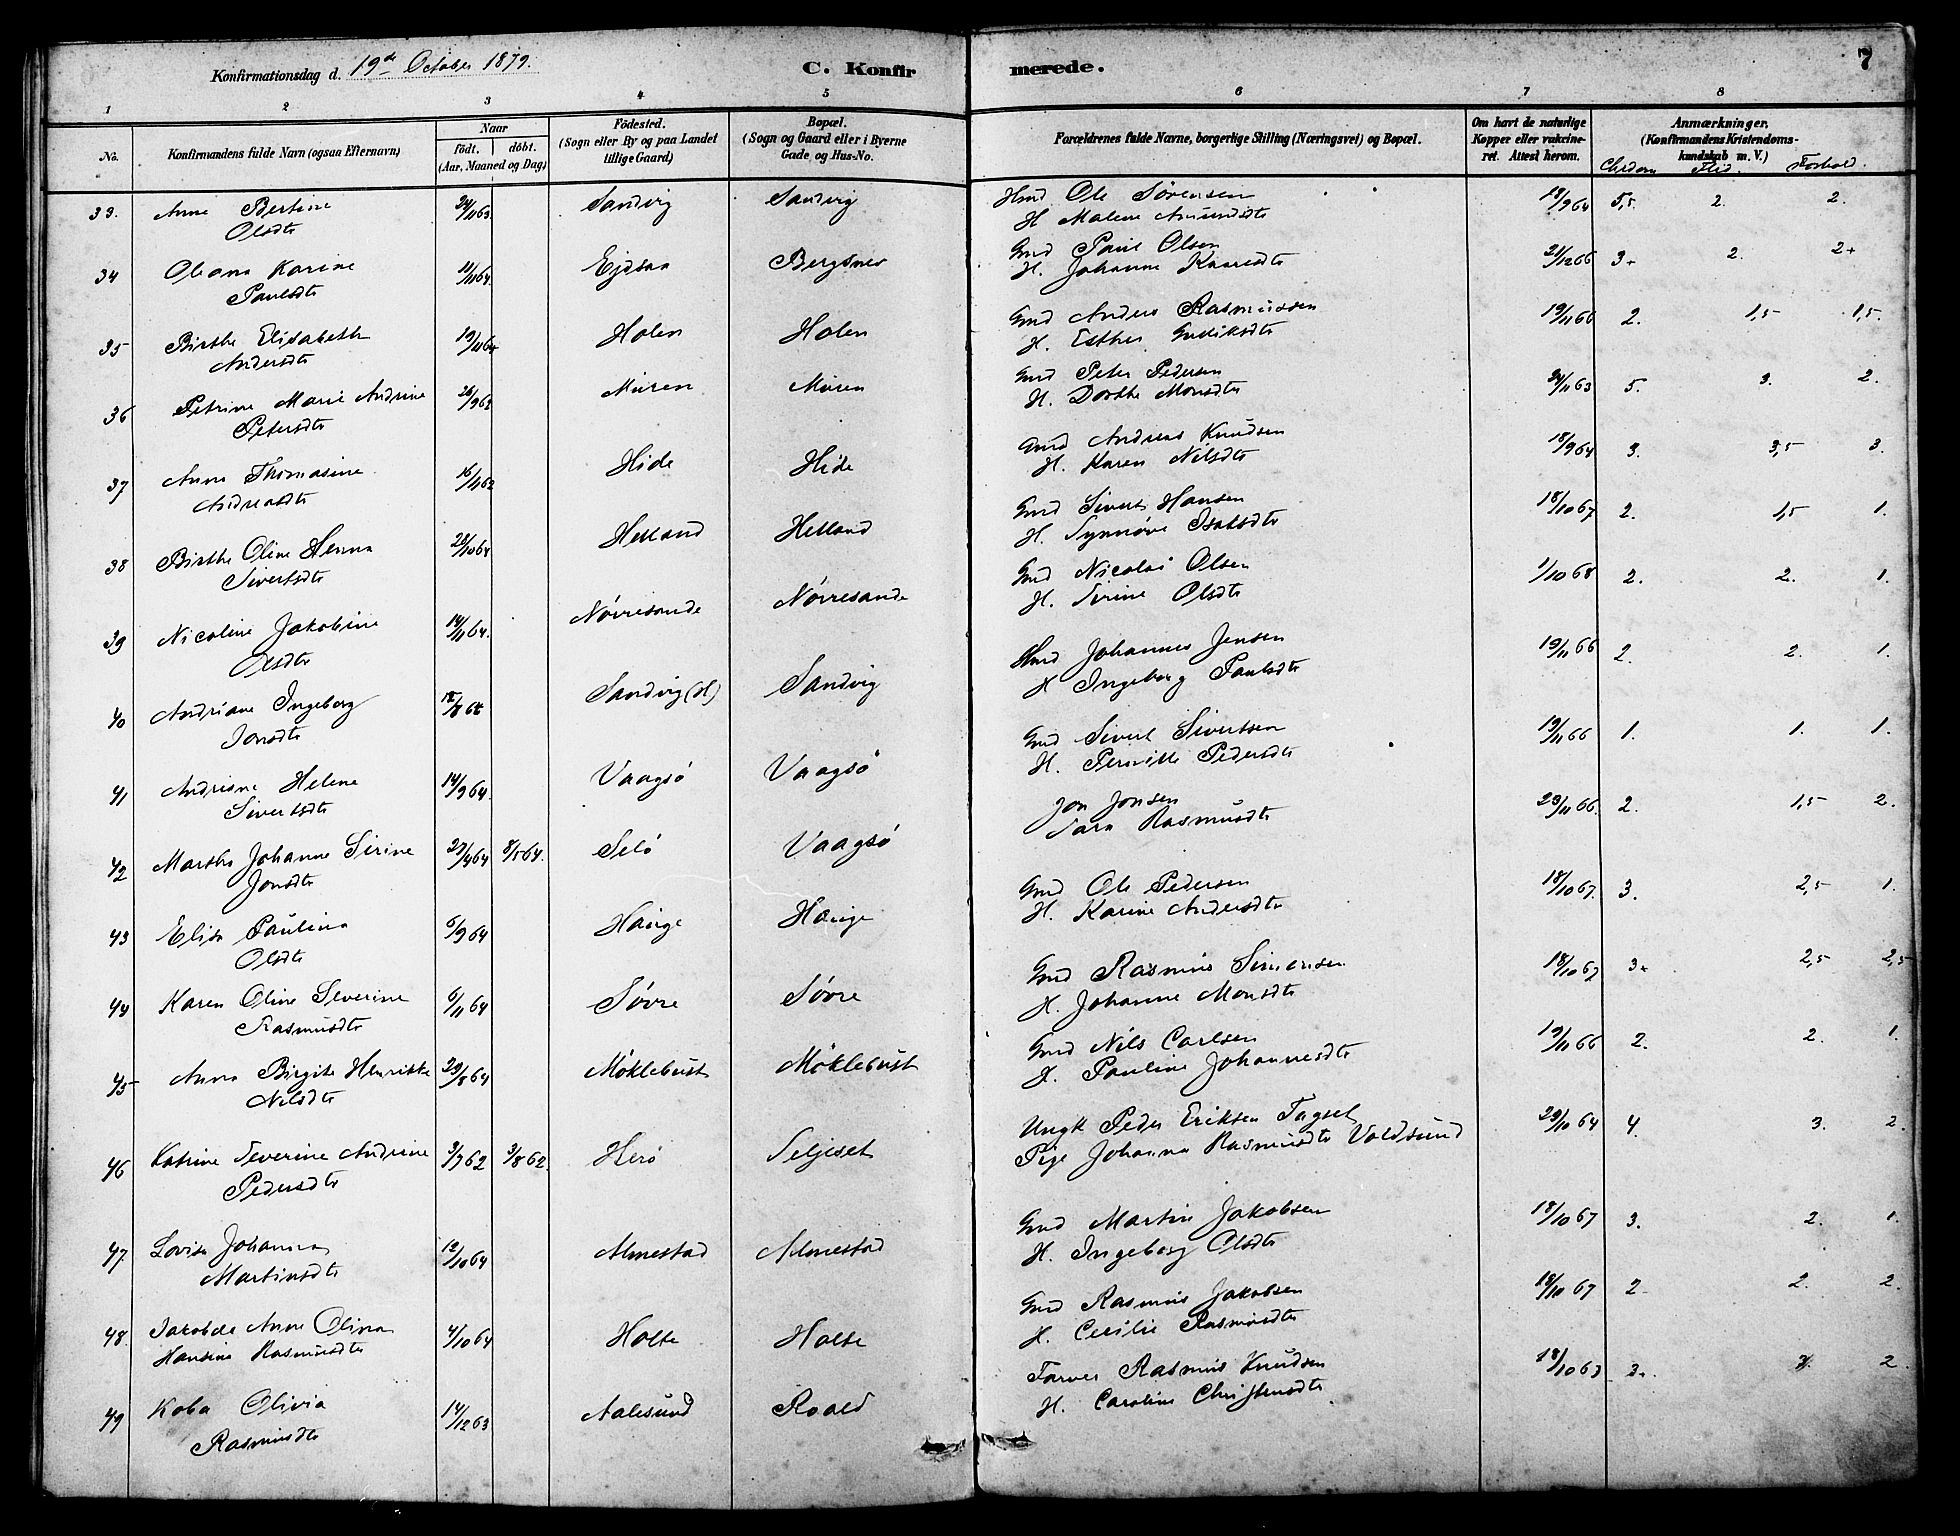 Konfirmationsdag d. 19de October 1879.
C. Konfirmerede.
7
1 2 3 4 5 6 7 8
No.
Konfirmandens fulde Navn (ogsaa Efternavn)
Naar
Födt. döbt.
(Aar, Maaned og Dag)
Födested.
(Sogn eller By og paa Landet
tillige Gaard)
Bopæl.
(Sogn og Gaard eller i Byerne
Gade og Hus-No.
Forældrenes fulde Navne, borgerlige Stilling (Næringsvei) og Bopæl.
Om havt de naturlige
Kopper eller vakcine-
ret. Attest herom.
Anmærkninger.
(Konfirmandens Kristendoms-
kundskab m. V.)
Chrdom Flid. Forhold.
33. Anne Bertine 24/11 63 Sandvig Sandvig Hmd Ole Sörensen 18/9 64 5,5. 2. 2.
Olsdtr H Malene Amundsdtr
34 Oleana Karine 11/11 64 Ejdsaa Bergsnes Gmd Paul Olsen 21/12 66 3+ 2. 2+
Paulsdtr H. Johanne Knuredtr
35 Birthe Elisabeth 19/11 64 Holen Holen Gmd Anders Rasmussen 19/11 66 2. 1,5 1,5.
Andersdtr H. Esther
36 Petrine Marie Andrine 26/9 63 Muren Muren Gmd Peter Pedersen 24/11 63 5. 3. 2.
Petersdtr H. Dorthe Monsdtr
37 Anne Thomasine 16/11 62 Hide Hide Gmd Andreas Knudsen 18/9 64 3. 3,5 3.
Andreasdtr H. Karen Nilsdtr
38 Birthe Oline Henna 28/10 64 Helland Helland Gmd Sivert Hansen 18/10 67 2. 1,5 1.
Sivertsdtr H. Synnöve Isaksdtr
39 Nicoline Jakobine 14/11 64. Nörresande Nörresande Gmd Nicolai Olsen 1/10 68 2. 2. 1.
Olsdtr H. Sirine Olsdtr
40 Andriane Ingeborg Sandvig (H) Sandvig Hmd Johannes Jensen 19/11 66 2. 2. 1.
Jonsdtr H Ingeborg Paulsdtr
41 Andriane Helene 14/9 64. Vaagsö Vaagsö Gmd Sivert Sivertsen 19/11 66 1. 1. 1.
Sivertsdtr H. Pernille Pedersdtr
42 Marthe Johanne Sirine 29/4 64 8/5 64. Selö Vaagsö Jon Jonsen 23/11 66. 2. 1,5 2.
Jonsdtr Sara Rasmusdtr
43 Elisa Paulina 6/9 64 Hauge Hauge Gmd Ole Pedersen 18/10 67. 3. 2,5 1.
Olsdtr H. Karine Andersdtr
44 Karen Oline Severine 6/11 64 Sövre Sövre Gmd Rasmus Simensen 18/10 67 3+ 2,5 2,5
Rasmusdtr H. Johanne Monsdtr
45 Anna Birgite Henrikke 29/8 64 Möklebust Möklebust Gmd Nils Carlsen 19/11 66 2. 2. 1.
Nilsdtr H. Pauline Johannesdtr
46 Katrine Severine Andrine 3/7 62 3/8 62. Herö Seljeset Ungk Peder Eriksen Tagset 29/10 64 4. 3. 2.
Pedersdtr Pige Johanna Rasmusdtr Voldsund
47. Lovise Johanna 12/10 64 Almestad Almestad Gmd Martin Jakobsen 18/10 67 3. 2. 1.
Martinsdtr H. Ingeborg Olsdtr
48. Jakobde Anne Olina 4/10 64 Holte Holte Gmd Rasmus Jakobsen 18/10 67 2 2. 2.
Hansine Rasmusdtr H. Cecilie Rasmusdtr
49 Koba Olivia 14/12 63 Aalesund Roald Farver Rasmus Knudsen 18/10 63 2.
Rasmusdtr H. Caroline Christensdtr